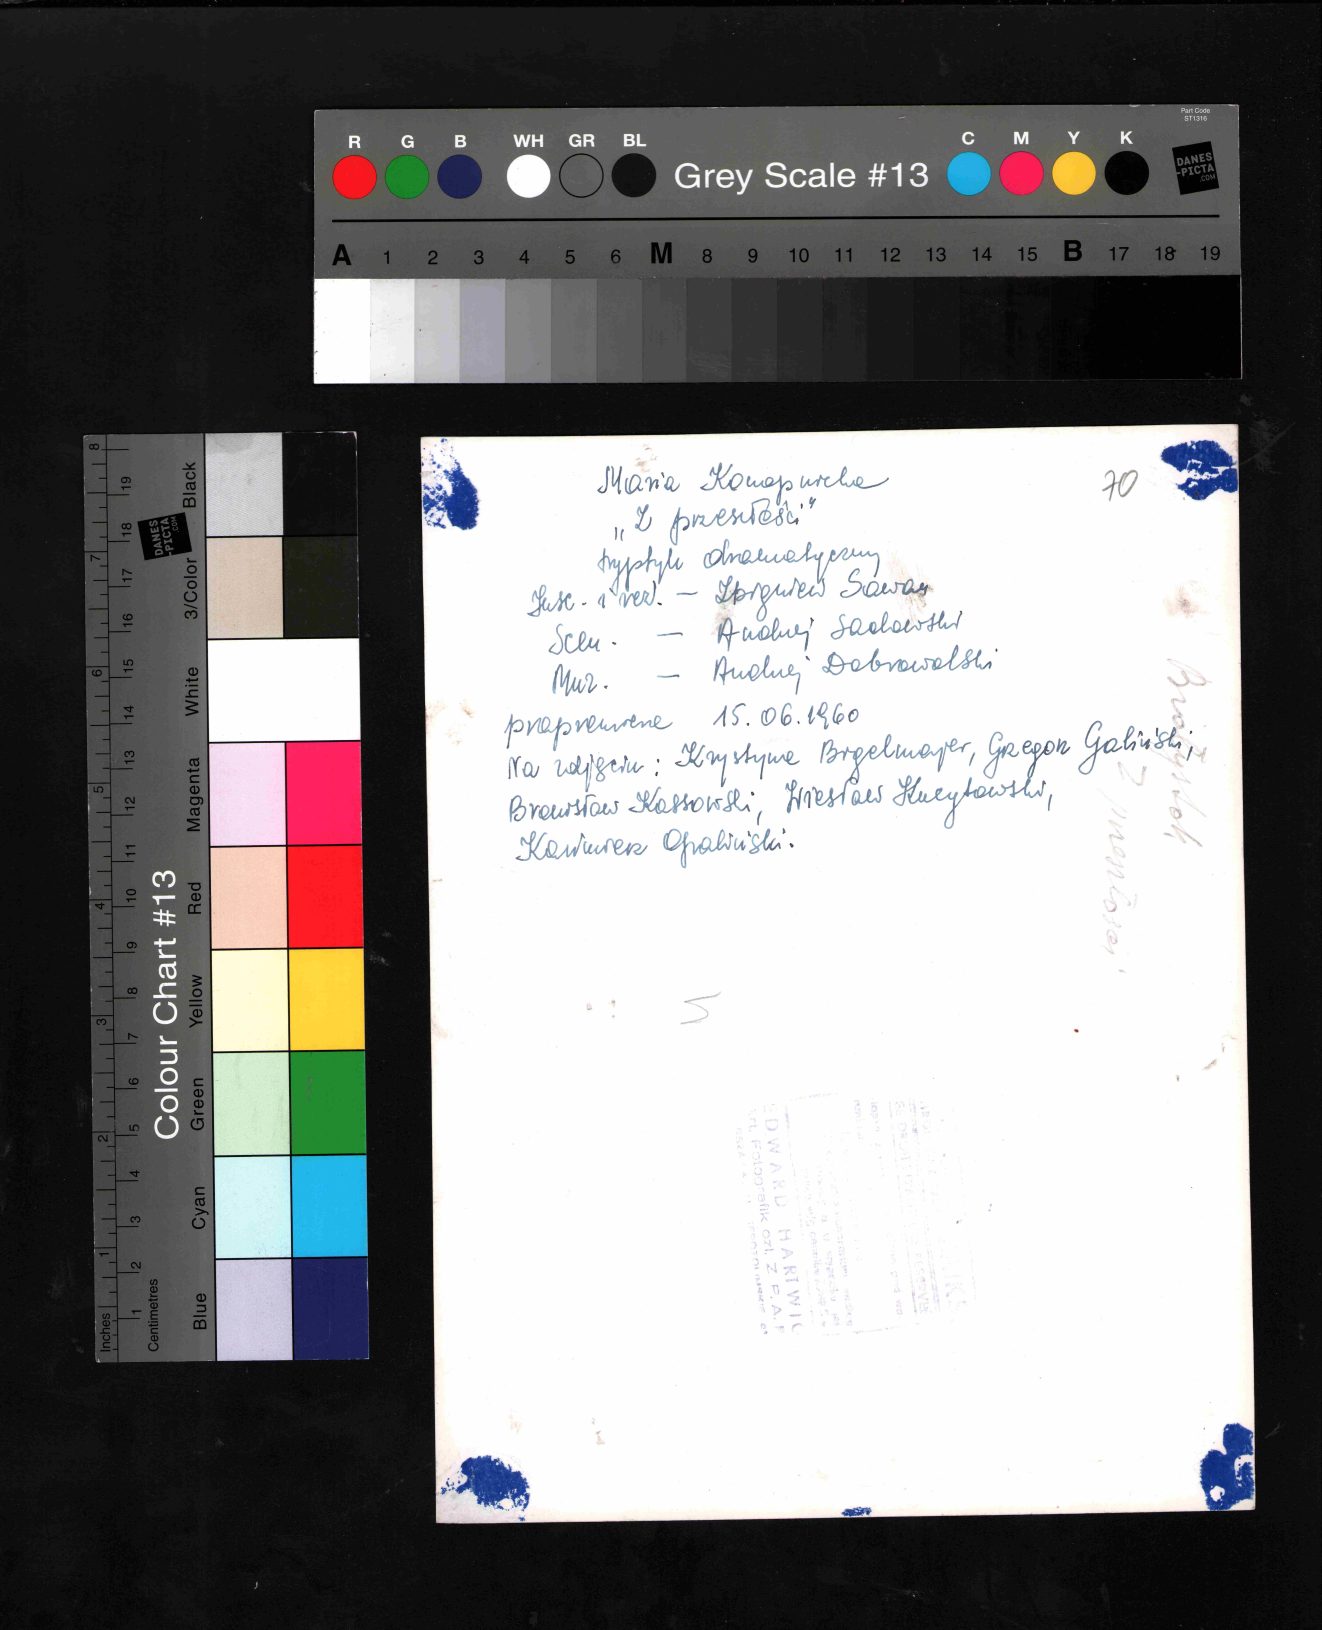 Part Code
ST1316
R G B WH GR BL Grey Scale #13 C M Y K
DANES
-PICTA
.COM
A 1 2 3 4 5 6 M 8 9 10 11 12 13 14 15 B 17 18 19
Colour Chart #13
DANES
-PICTA
.COM
Black
3/Color
White
Magenta
Red
Yellow
Green
Cyan
Blue
8 7 6 5 4 3 2 1 Inches
19 18 17 16 15 14 13 12 11 10 9 8 7 6 5 4 3 2 1 Centimetres
70
Maria Konopnicka
„Z przeszłości"
tryptyk dramatyczny
Insc. i reż. — Zbigniew Sawan
Scen. — Andrzej Sadowski
Muz. — Andrzej Dobrowolski
prapremiera 15.06.1960
Na zdjęciu: Krystyna Brgelmajer, Grzegorz Galiński,
Bronisław Kassowski, Wiesław
Kazimierz Opaliński.
Z przeszłości
EDWARD HARTWIG
Art. Fotografik czł. Z.P.A.F